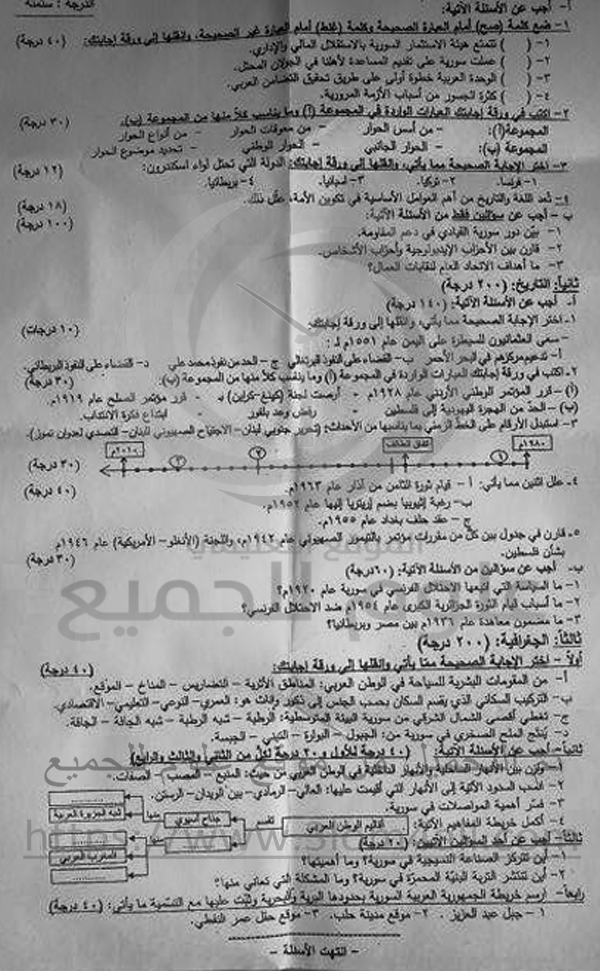 الدرجة : ستمئة
أ- أجب عن الأسئلة الآتية:
١- ضع كلمة (صح) أمام العبارة الصحيحة وكلمة (غلط) أمام العبارة غير الصحيحة، وانقلها إلى ورقة إجابتك: (٤٠ درجة)
١- ( ) تتمتع هيئة الاستثمار السورية بالاستقلال المالي والإداري.
٢- ( ) عملت سورية على تقديم المساعدة لأهلنا في الجولان المحتل.
٣- ( ) الوحدة العربية خطوة أولى على طريق تحقيق التضامن العربي.
٤- ( ) كثرة الجسور من أسباب الأزمة المرورية.
٢- اكتب في ورقة إجابتك العبارات الواردة في المجموعة (أ) وما يناسب كلاً منها من المجموعة (ب). (٣٠ درجة)
المجموعة(أ): - من أسس الحوار - من معوقات الحوار - من أنواع الحوار
المجموعة (ب): - الحوار الجانبي - الحوار الوطني - تحديد موضوع الحوار
٣- اختر الإجابة الصحيحة مما يأتي، وانقلها إلى ورقة إجابتك: الدولة التي تحتل لواء اسكندرون: (١٢ درجة)
١- فرنسا. ٢- تركيا. ٣- اسبانيا. ٤- بريطانيا.
٤- تُعد اللغة والتاريخ من أهم العوامل الأساسية في تكوين الأمة، علّل ذلك. (١٨ درجة)
ب - أجب عن سؤالين فقط من الأسئلة الآتية: (١٠٠ درجة)
١- بيّن دور سورية القيادي في دعم المقاومة.
٢- قارن بين الأحزاب الإيديولوجية وأحزاب الأشخاص.
٣- ما أهداف الاتحاد العام لنقابات العمال؟
ثانياً: التاريخ: (٢٠٠ درجة)
أ- أجب عن الأسئلة الآتية: (١٤٠ درجة)
١- اختر الإجابة الصحيحة مما يأتي، وانقلها إلى ورقة إجابتك: (١٠ درجات)
- سعى العثمانيون للسيطرة على اليمن عام ١٥٥١م لـ :
أ- تدعيم مركزهم في البحر الأحمر ب- القضاء على النفوذ البرتغالي ج - الحد من نفوذ محمد علي د- القضاء على النفوذ البريطاني.
٢- اكتب في ورقة إجابتك العبارات الواردة في المجموعة (أ) وما يناسب كلاً منها من المجموعة (ب): (٣٠ درجة)
(أ) - قرر المؤتمر الوطني الأردني عام ١٩٢٨م - أوصت لجنة (كينغ-كراين) بـ - قرر مؤتمر الصلح عام ١٩١٩م.
(ب) - الحد من الهجرة اليهودية إلى فلسطين - رفض وعد بلفور - ابتداع فكرة الانتداب.
٣- استبدل الأرقام على الخط الزمني بما يناسبها من الأحداث: (تحرير جنوبي لبنان- الاجتياح الصهيوني للبنان- التصدي لعدوان تموز).
١٩٨٠م ١ اتفاق الطائف ٢ ٣ ٢٠١٠م (٣٠ درجة)
٤- علل اثنين مما يأتي: أ - قيام ثورة الثامن من آذار عام ١٩٦٣م. (٤٠ درجة)
ب- رغبة إثيوبيا بضم إريتريا إليها عام ١٩٥٢م.
ج - عقد حلف بغداد عام ١٩٥٥م.
٥- قارن في جدول بين كل من مقررات مؤتمر بالتيمور الصهيوني عام ١٩٤٢م، واللجنة (الأنغلو- الأمريكية) عام ١٩٤٦م
بشأن فلسطين. (٣٠ درجة)
ب- أجب عن سؤالين من الأسئلة الآتية: (٦٠درجة)
١- ما السياسة التي اتبعها الاحتلال الفرنسي في سورية عام ١٩٢٠م؟
٢- ما أسباب قيام الثورة الجزائرية الكبرى عام ١٩٥٤م ضد الاحتلال الفرنسي؟
٣- ما مضمون معاهدة عام ١٩٣٦م بين مصر وبريطانيا؟
ثالثاً: الجغرافية: (٢٠٠ درجة)
أولاً - اختر الإجابة الصحيحة مما يأتي وانقلها إلى ورقة إجابتك: (٤٠ درجة)
أ- من المقومات البشرية للسياحة في الوطن العربي: المناطق الأثرية - التضاريس - المناخ - الموقع.
ب- التركيب السكاني الذي يقسم السكان بحسب الجنس إلى ذكور وإناث هو: العمري- النوعي- التعليمي- الاقتصادي.
ج- تغطي أقصى الشمال الشرقي من سورية البيئة المتوسطية: الرطبة - شبه الرطبة - شبه الجافة - الجافة.
د- يُنتج الملح الصخري في سورية من: الجبول - البوارة - التبني - الجبسة.
ثانياً- أجب عن الأسئلة الآتية: (٤٠ درجة للأول و ٢٠ درجة لكل من الثاني والثالث والرابع)
١- وازن بين الأنهار الساحلية والأنهار الداخلية في الوطن العربي من حيث: المنبع - المصب - الصفات.
٢- انسب السدود الآتية إلى الأنهار التي أقيمت عليها: العالي- الرمادي- بين الويدان- الرستن.
٣- فسّر أهمية المواصلات في سورية.
٤- أكمل خريطة المفاهيم الآتية:
أقاليم الوطن العربي
تقسم
جناح آسيوي
منها
شبه الجزيرة العربية
المغرب العربي
ثالثاً- أجب عن أحد السؤالين الآتيين: (٢٠ درجة)
١- أين تتركز الصناعة النسيجية في سورية؟ وما أهميتها؟
٢- أين تنتشر التربة البنيّة المحمرّة في سورية؟ وما المشكلة التي تعاني منها؟
رابعاً- ارسم خريطة الجمهورية العربية السورية بحدودها البرية والبحرية وثبّت عليها مع التسمية ما يأتي: (٤٠ درجة)
١- جبل عبد العزيز . ٢- موقع مدينة حلب. ٣- موقع حقل عمر النفطي.
- انتهت الأسئلة -